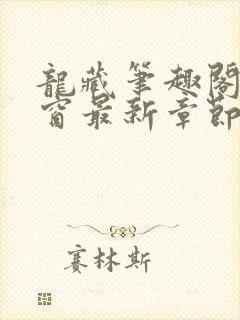 龍藏筆趣閣
窗最新章節
賽林斯